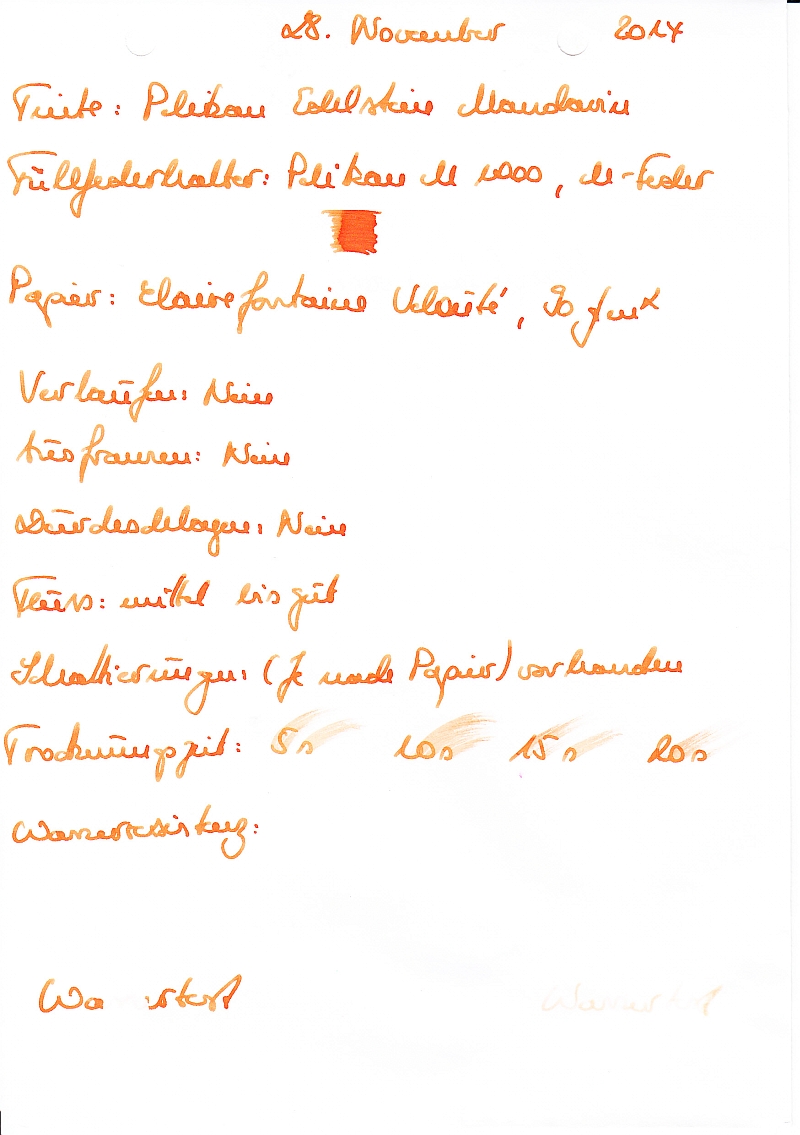 28. November 2014
Tinte: Pelikan Edelstein Mandarin
Füllfederhalter: Pelikan M 1000, M-Feder
Papier: Clairefontaine Velouté, 90 g/m²
Verlaufen: Nein
Ausfransen: Nein
Durchschlagen: Nein
Fluss: mittel bis gut
Schattierungen: (Je nach Papier) vorhanden
Trocknungszeit: 5s 10s 15s 20s
Wasserresistenz:
Wa rtest Wassertest